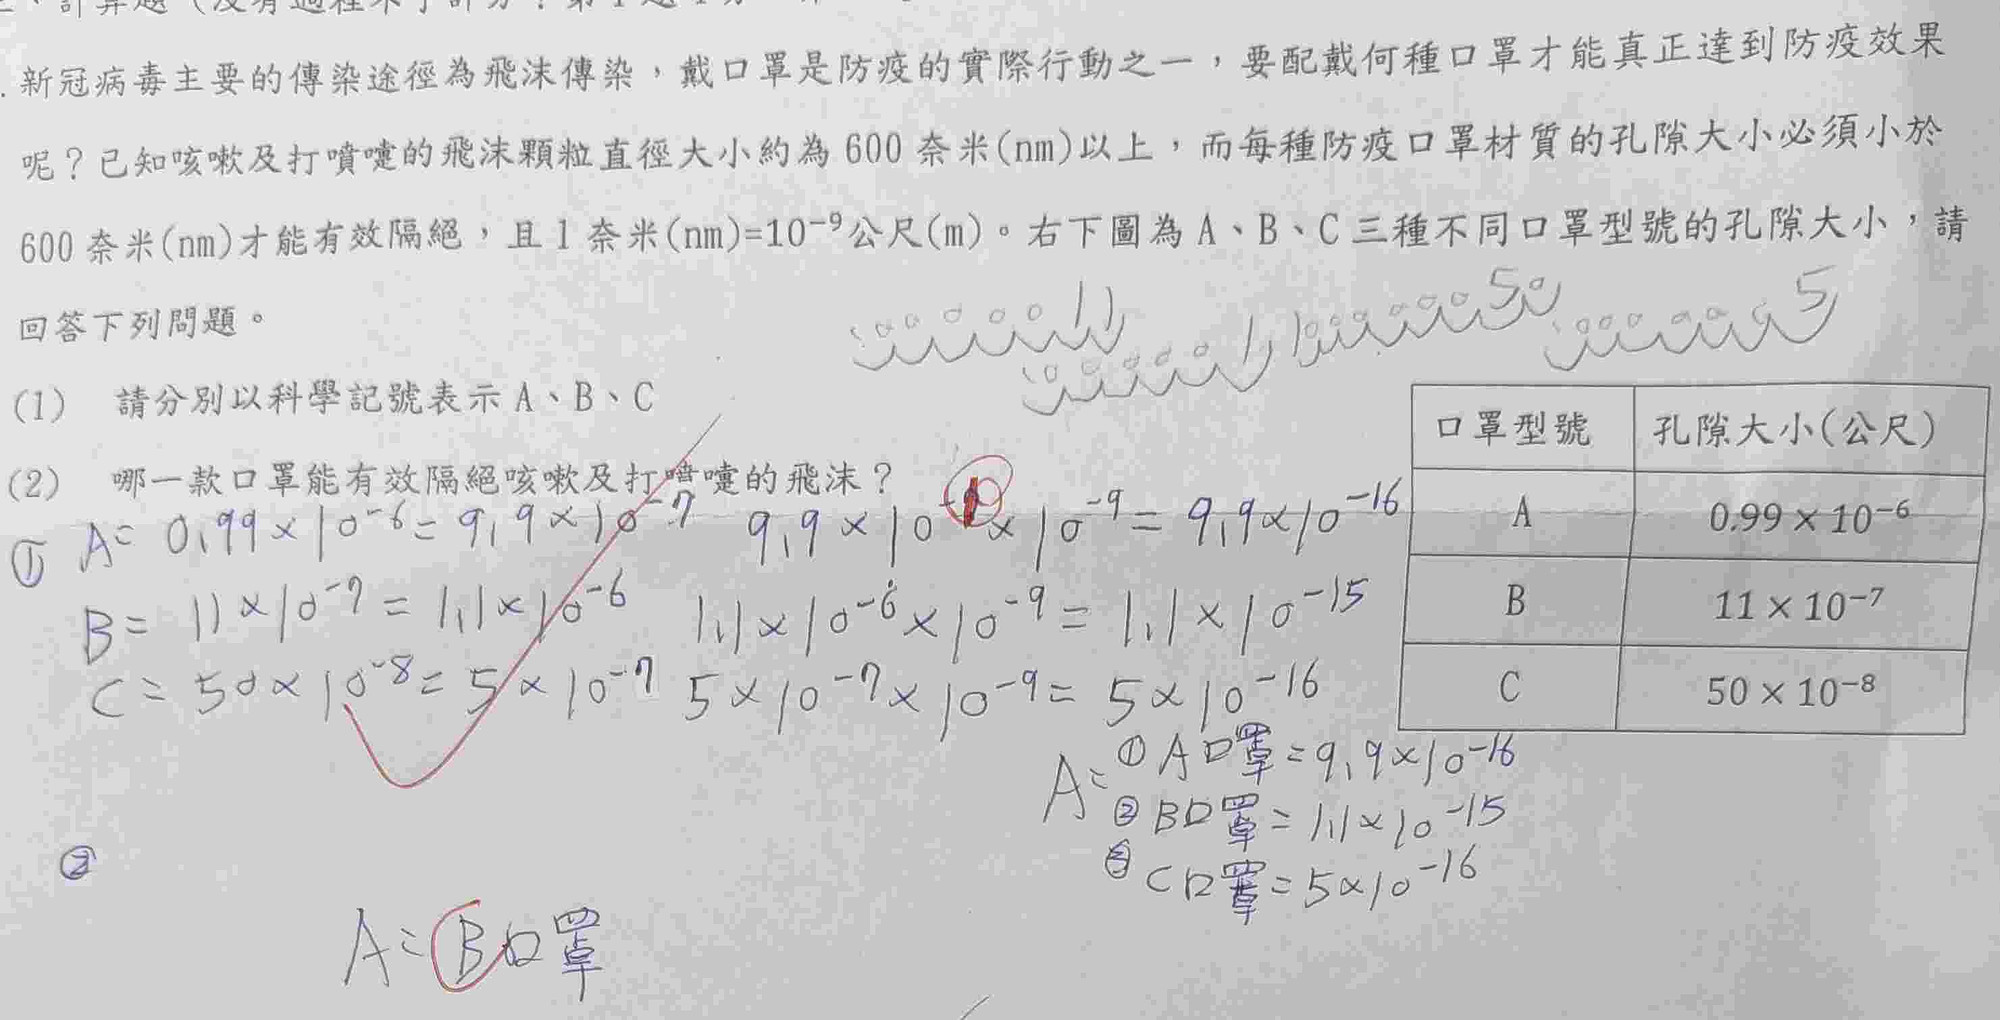 新冠病毒主要的傳染途徑為飛沫傳染，戴口罩是防疫的實際行動之一，要配戴何種口罩才能真正達到防疫效果
呢？已知咳嗽及打噴嚏的飛沫顆粒直徑大小約為 600 奈米(nm)以上，而每種防疫口罩材質的孔隙大小必須小於
600 奈米(nm)才能有效隔絕，且 1 奈米(nm)=10⁻⁹公尺(m)。右下圖為 A、B、C 三種不同口罩型號的孔隙大小，請
回答下列問題。
(1) 請分別以科學記號表示 A、B、C
(2) 哪一款口罩能有效隔絕咳嗽及打噴嚏的飛沫？
口罩型號 孔隙大小(公尺)
A 0.99 × 10⁻⁶
B 11 × 10⁻⁷
C 50 × 10⁻⁸
① A= 0.99×10⁻⁶=9.9×10⁻⁷ 9.9×10 ×10⁻⁹=9.9×10⁻¹⁶
B= 11×10⁻⁷=1.1×10⁻⁶ 1.1×10⁻⁶×10⁻⁹=1.1×10⁻¹⁵
C=50×10⁻⁸=5×10⁻⁷ 5×10⁻⁷×10⁻⁹=5×10⁻¹⁶
A=①A口罩=9.9×10⁻¹⁶
②B口罩=1.1×10⁻¹⁵
③C口罩=5×10⁻¹⁶
②
A=B口罩